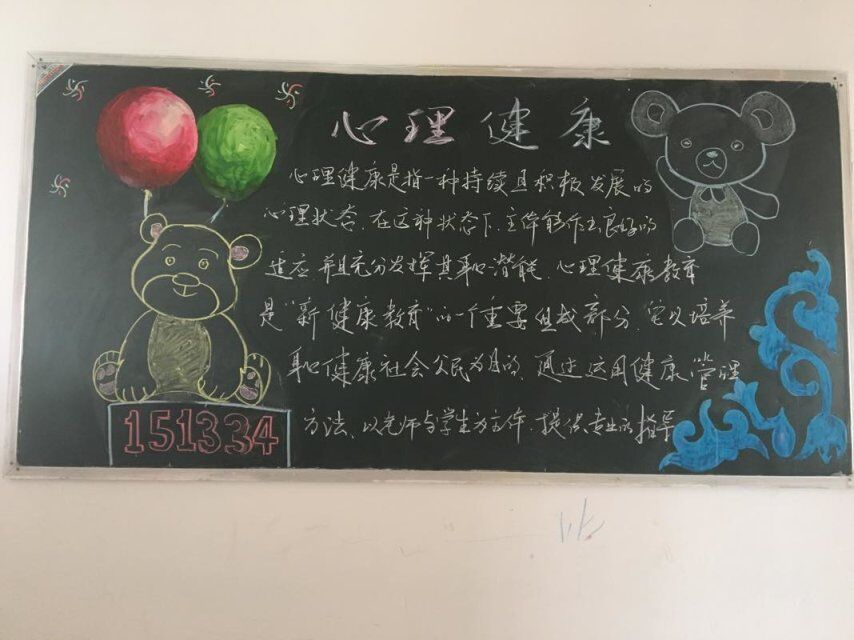 心理健康
心理健康是指一种持续且积极发展的
心理状态.在这种状态下.主体能作出良好的
适应.并且充分发挥其身心潜能.心理健康教育
是“新健康教育”的一个重要组成部分.它以培养
身心健康社会公民为目的.通过运用健康管理
方法、以老师与学生为主体.提供专业的指导
151334